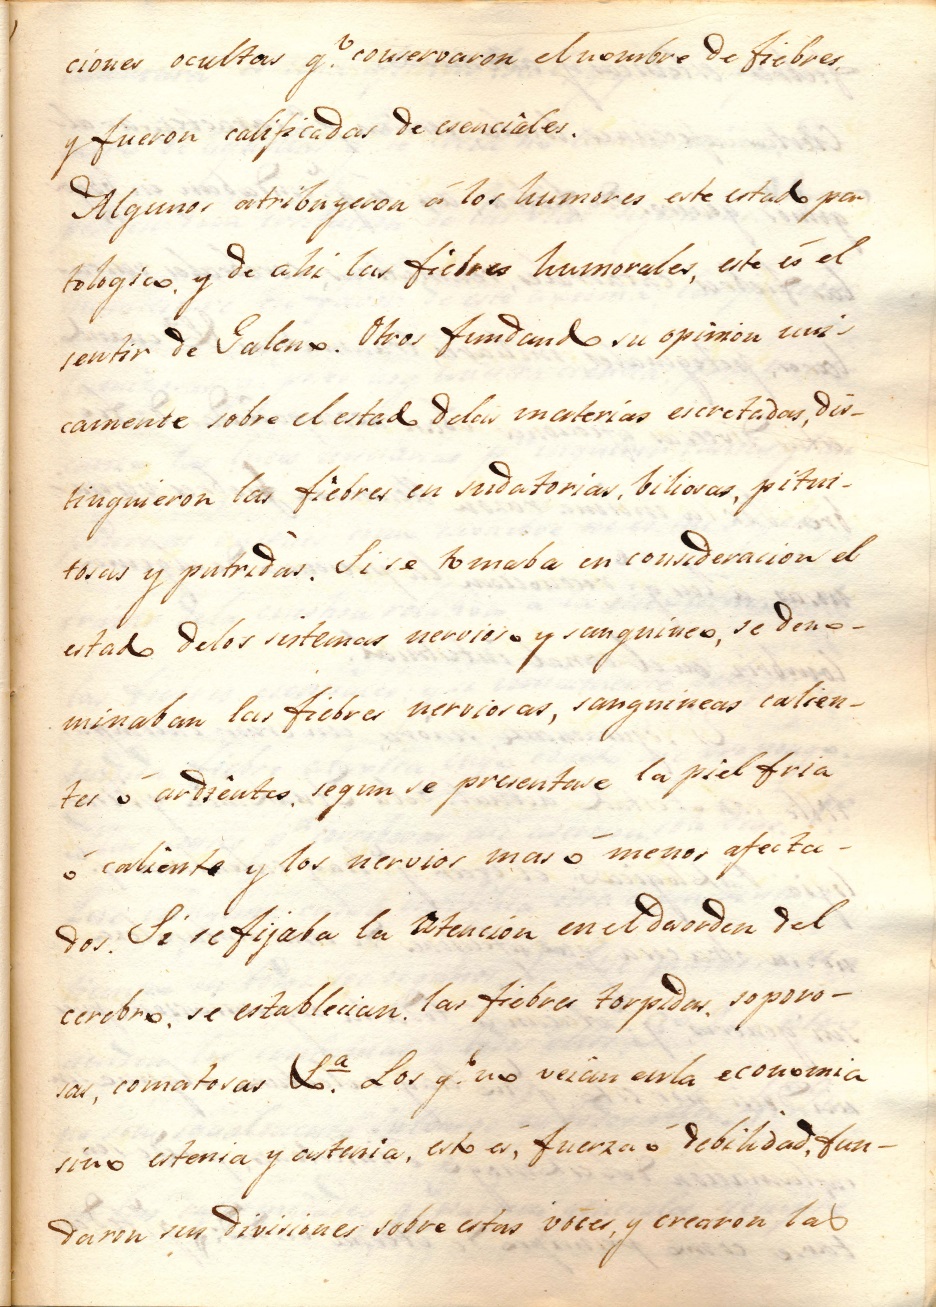 ciones ocultas q.e conservaron el nombre de fiebres
y fueron calificadas de esenciales.
Algunos atribuyeron á los humores este estado pa-
tologico, y de ahi las fiebres humorales, este és el
sentir de Galeno. Otros fundando su opinion uni-
camente sobre el estado delas materias escretadas, dis-
tinguieron las fiebres en sudatorias, biliosas, pitui-
tosas y putridas. Si se tomaba en consideracion el
estado delos sistemas nervioso y sanguineo, se deno-
minaban las fiebres nerviosas, sanguineas calien-
tes ó ardientes, segun se presentase la piel fria
ó caliente y los nervios mas ó menos afecta-
dos. Si se fijaba la atencion en el desorden del
cerebro, se establecian, las fiebres torpidas, soporo-
sas, comatosas &.a Los q.e no veian en la economia
sino estenia y astenia, esto és, fuerza ó debilidad, fun-
daron sus divisiones sobre estas voces, y crearon las